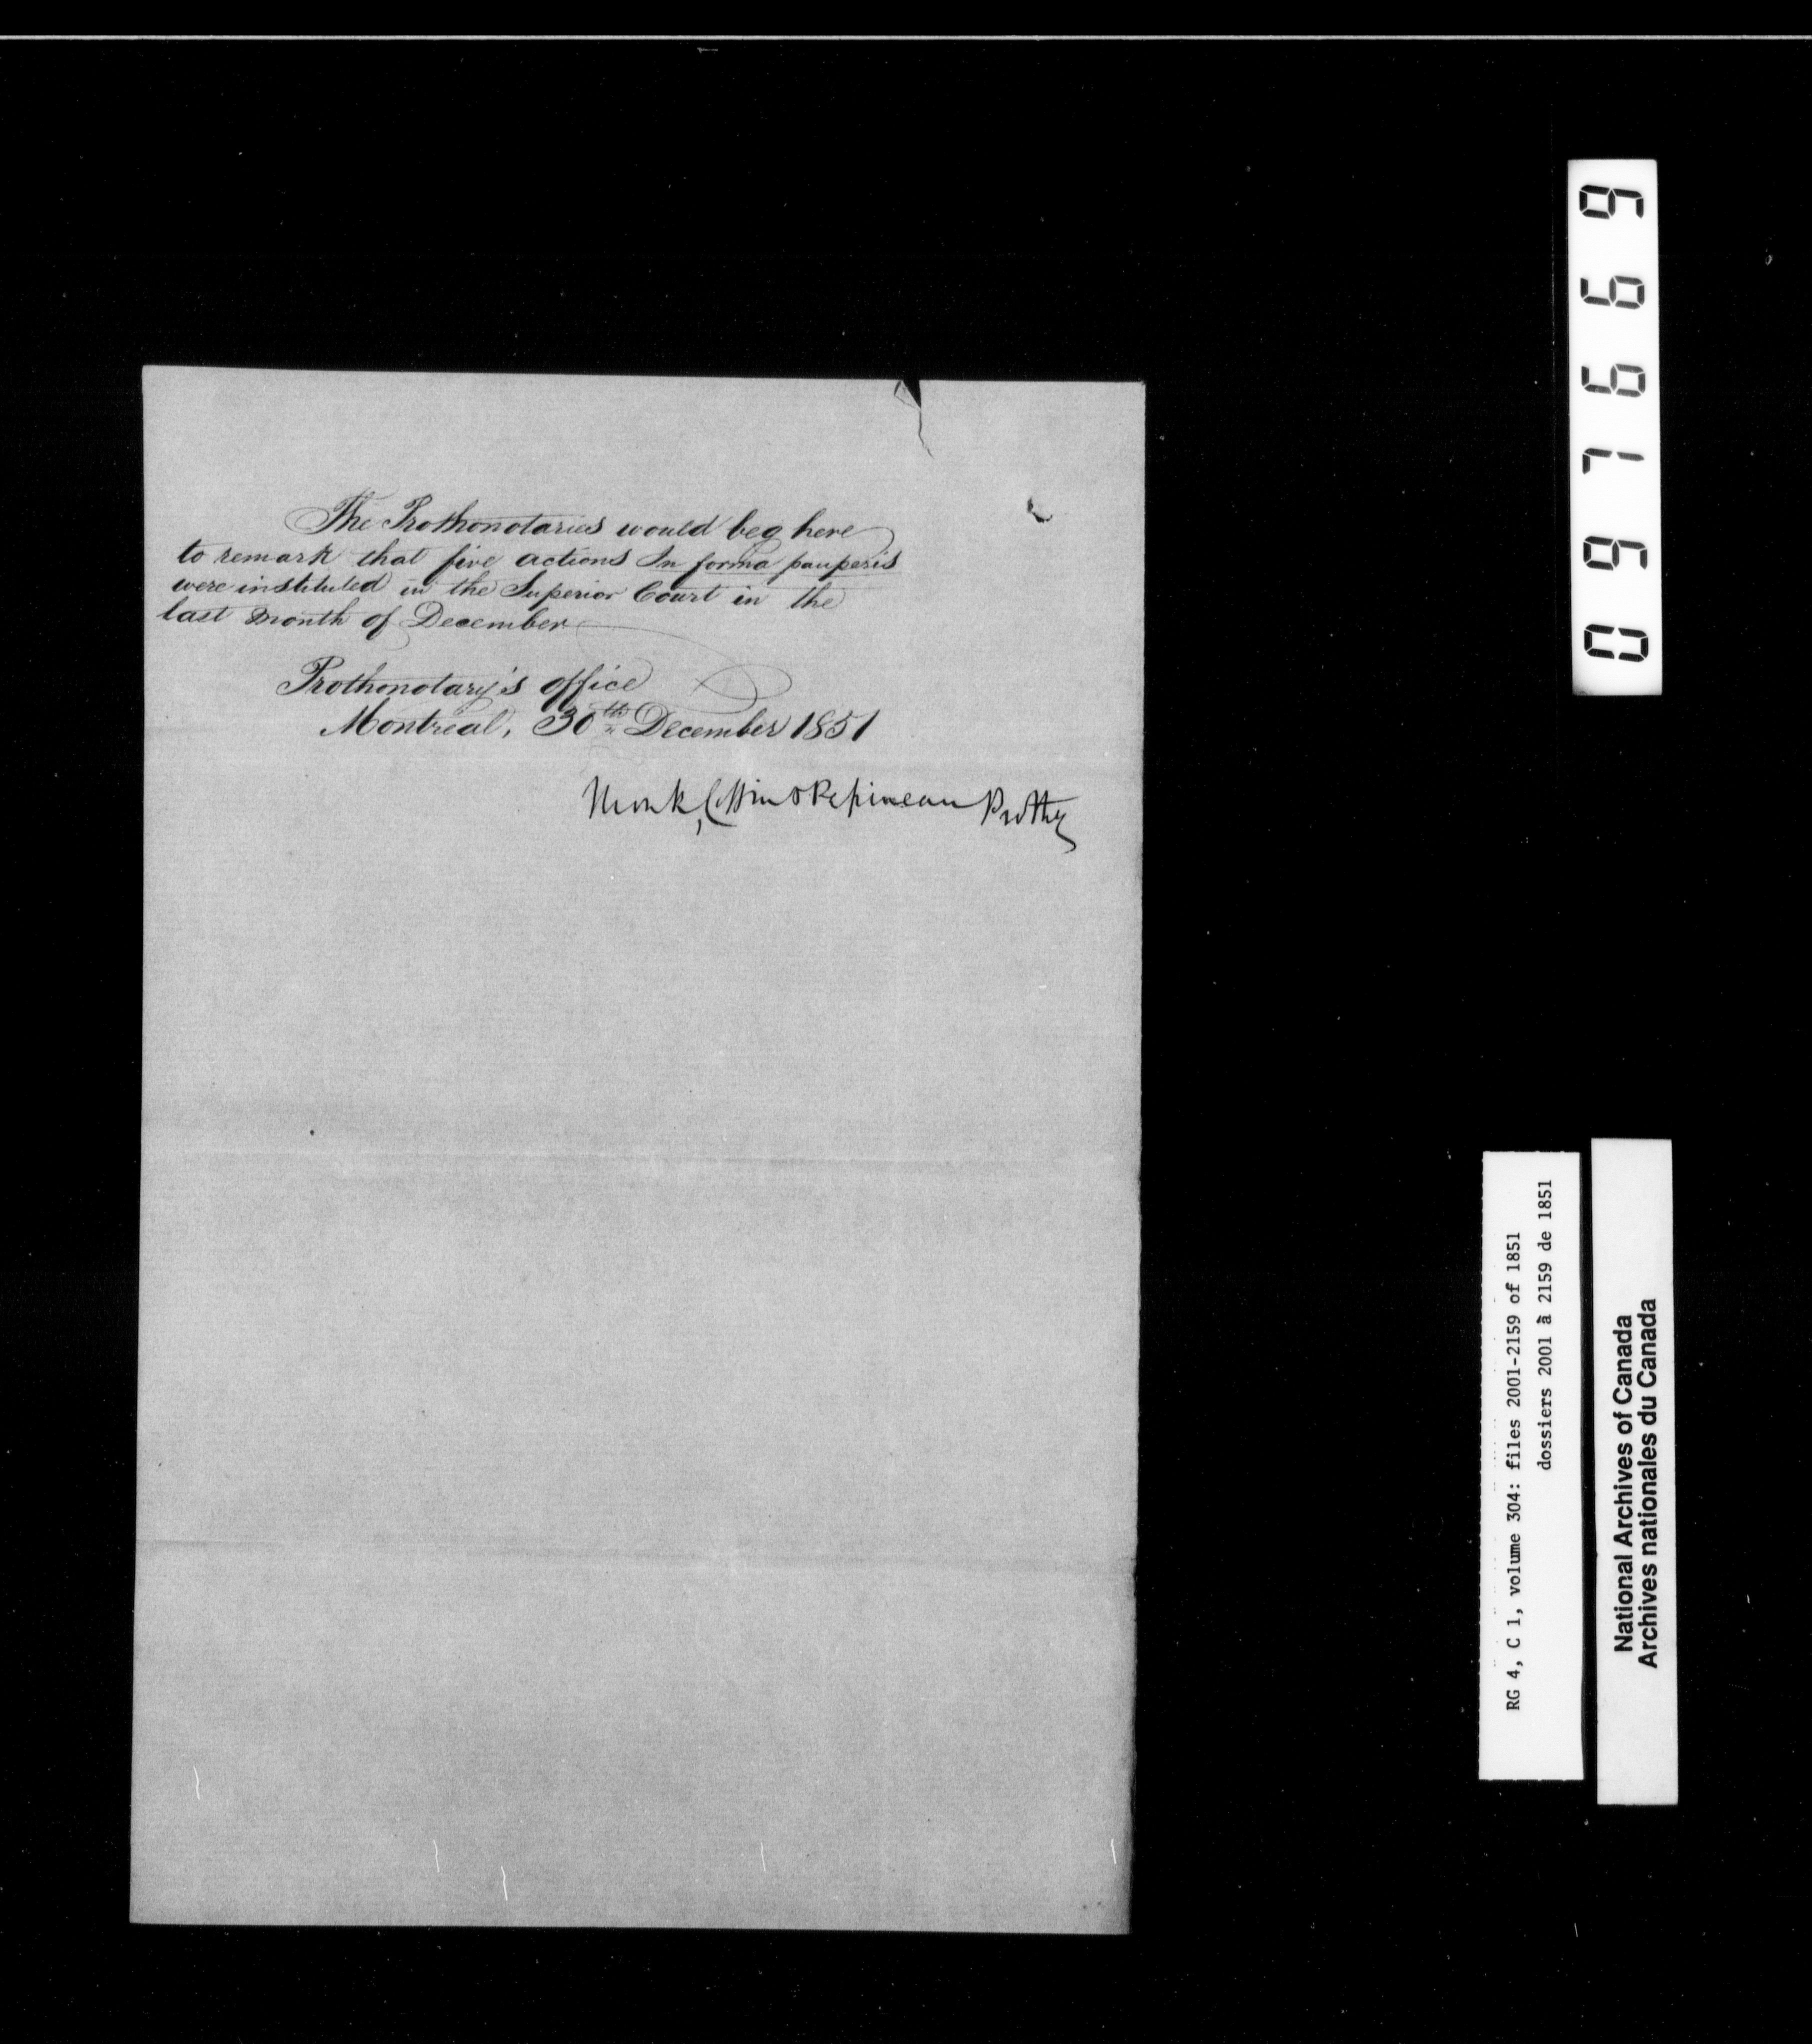 The Prothonotaries would beg here
to remark that five actions In forma pauperis
were instituted in the Superior Court in the
last month of December
Prothonotary's office
Montreal, 30th December 1851
Monk, Coffin & Papineau Prothy
097669
RG 4, C 1, volume 304: files 2001-2159 of 1851
dossiers 2001 à 2159 de 1851
National Archives of Canada
Archives nationales du Canada